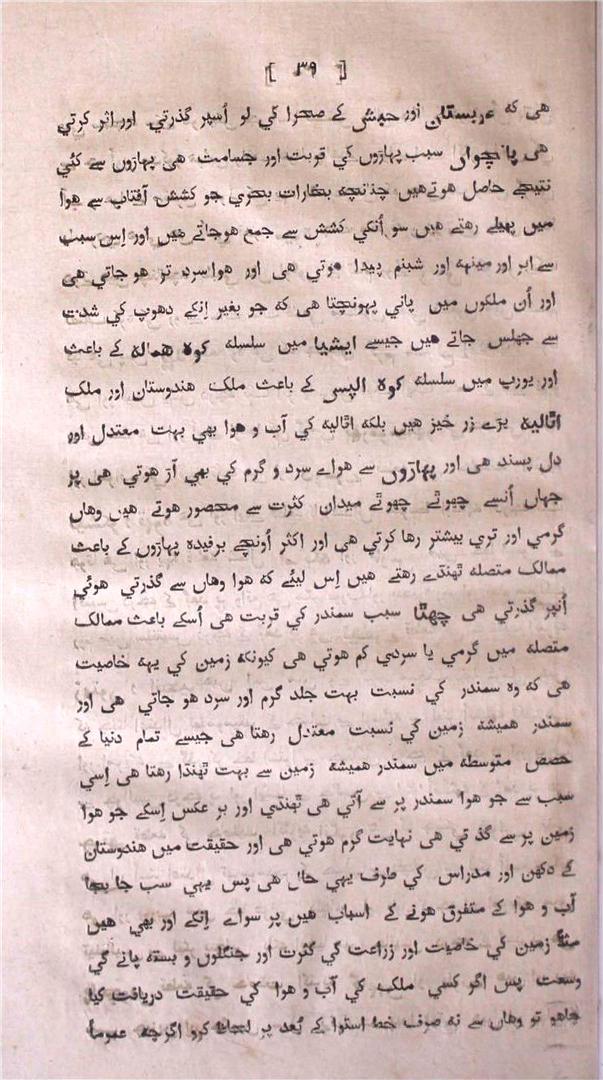 [ ۳۹ ]
هي که عربستان اور حبش کے صحرا کي لو اُسپر گذرتي اور اثر کرتي
هی پانچواں سبب پہاڑوں کي قربت اور جسامت هی پہاڑوں سے کئي
نتیجے حاصل هوتےهیں چنانچه بخارات بحري جو کشش آفتاب سے هوا
میں پھیلے رهتے هیں سو اُنکي کشش سے جمع هوجاتے هیں اور اِس سبب
سے ابر اور مینهه اور شبنم پیدا هوتي هی اور هوا سرد تر هو جاتي هی
اور اُن ملکوں میں پاني پہونچتا هی که جو بغیر اِنکے دھوپ کي شدت
سے جھلس جاتے هیں جیسے ایشیا میں سلسله کوہ هماله کے باعث
اور یورپ میں سلسله کوہ الپس کے باعث ملک هندوستان اور ملک
اٹالیه بڑے زر خیز هیں بلکه اٹالیه کي آب و هوا بھي بہت معتدل اور
دل پسند هی اور پہاڑوں سے هواے سرد و گرم کي بھي آڑ هوتي هی پر
جہاں اُنسے چھوٹے چھوٹے میدان کثرت سے محصور هوتے هیں وهاں
گرمي اور تري بیشتر رها کرتي هی اور اکثر اُونچے برفیدہ پہاڑوں کے باعث
ممالک متصله ٹھنڈے رهتے هیں اِس لیئے که هوا وهاں سے گذرتي هوئي
اُنپر گذرتي هی چھٹا سبب سمندر کي قربت هی اُسکے باعث ممالک
متصله میں گرمي یا سردي کم هوتي هی کیونکه زمین کي یهه خاصیت
هی که وہ سمندر کي نسبت بہت جلد گرم اور سرد هو جاتي هی اور
سمندر همیشه زمین کي نسبت معتدل رهتا هی جیسے تمام دنیا کے
حصص متوسطه میں سمندر همیشه زمین سے بہت ٹھنڈا رهتا هی اِسي
سبب سے جو هوا سمندر پر سے آتي هی ٹھنڈي اور بر عکس اِسکے جو هوا
زمین پر سے گذ تي هی نہایت گرم هوتي هی اور حقیقت میں هندوستان
کے دکھن اور مدراس کي طرف یہي حال هی پس یہي سب جا بجا
آب و هوا کے متفرق هونے کے اسباب هیں پر سواے اِنکے اور بھي هیں
مثلاً زمین کي خاصیت اور زراعت کي کثرت اور جنگلوں و بسته پانے کي
وسعت پس اگر کسي ملک کي آب و هوا کي حقیقت دریافت کیا
چاهو تو وهاں سے نه صرف خط استوا کے بُعد پر لحاظ کرو اگرچه عموماً